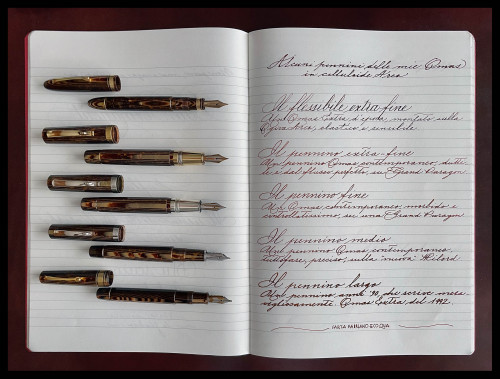 Alcuni pennini delle mie Omas
in celluloide Arco
Il flessibile extra-fine
Un Omas Extra d'epoca, montato sulla
Ogiva Arco, elastico e sensibile
Il pennino extra-fine
Un pennino Omas contemporaneo, dutti-
le e dal flusso perfetto su Grand Paragon
Il pennino fine
Un Omas contemporaneo, morbido e
controllatissimo, su una Grand Paragon
Il pennino medio
Un pennino Omas contemporaneo,
tuttofare, preciso, sulla "nuova" Milord
Il pennino largo
Un pennino anni '90 che scrive mera-
vigliosamente. Omas Extra del 1992.